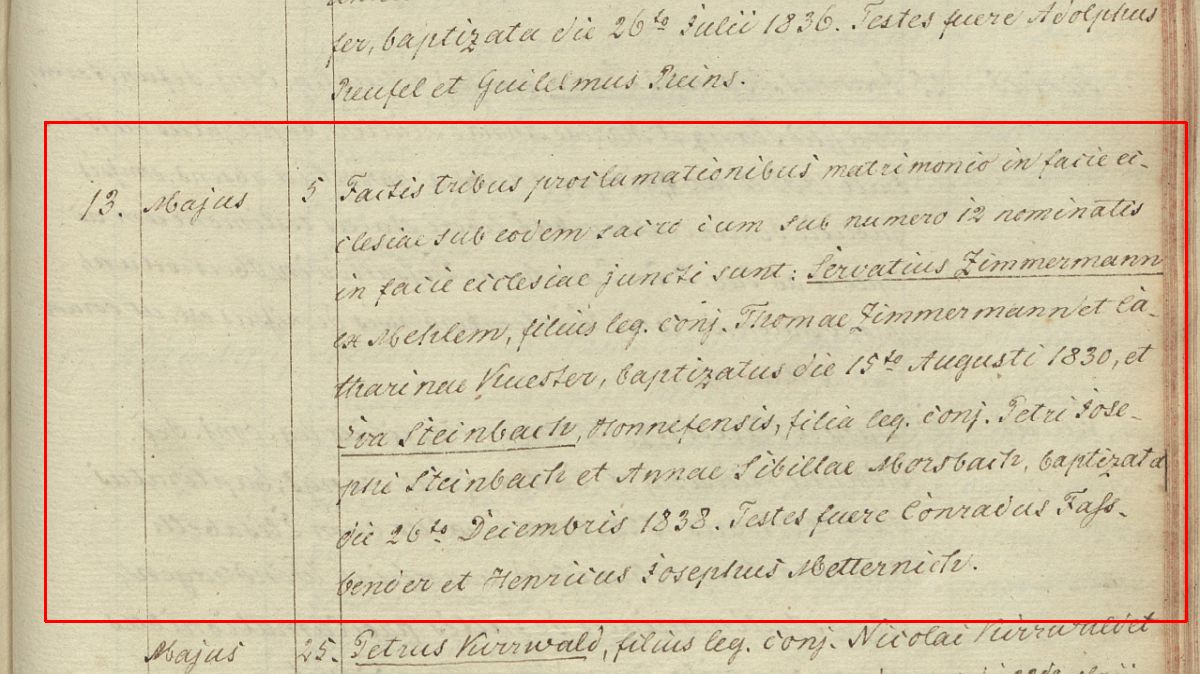 fer, baptizata die 26to Julii 1836. Testes fuere Adolphus
Reufel et Guilelmus Reins.
13. Majus 5 Factis tribus proclamationibus matrimonio in facie ec-
clesiae sub eodem sacro cum sub numero 12 nominatis
in facie ecclesiae juncti sunt: Servatius Zimmermann
ex Mehlem, filius leg. conj. Thomae Zimmermann et Ca-
tharinae Kuester, baptizatus die 15to Augusti 1830, et
Eva Steinbach, Honnefensis, filia leg. conj. Petri Jose-
phi Steinbach et Annae Sibillae Morsbach, baptizata
die 26to Decembris 1838. Testes fuere Conradus Fass-
bender et Henricus Josephus Metternich.
Majus 25. Petrus Kirrwald, filius leg. conj. Nicolai Kirrwald et